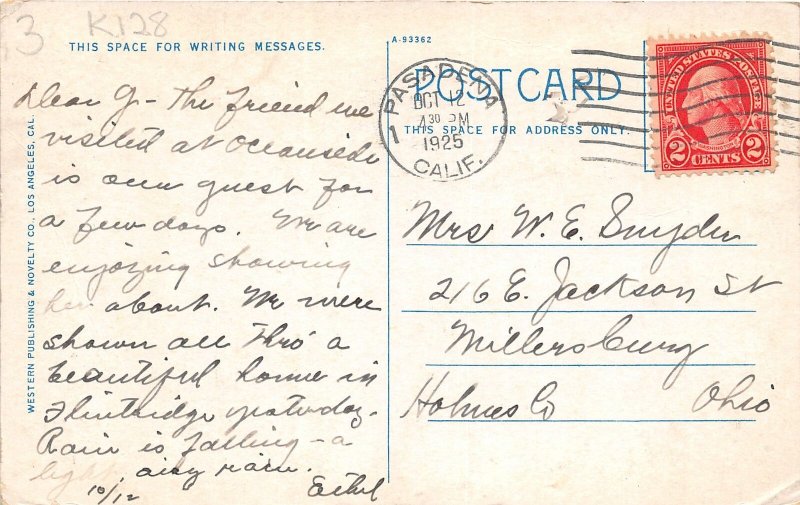 3 K128
THIS SPACE FOR WRITING MESSAGES.
Dear G- The friend we
visited at Oceanside
is our guest for
a few days. We are
enjoying showing
her about. We were
shown all thro' a
beautiful home in
Flintridge yesterday.
Rain is falling - a
light, airy rain.
10/12 Ethel
WESTERN PUBLISHING & NOVELTY CO., LOS ANGELES, CAL.
A-93362
POST CARD
THIS SPACE FOR ADDRESS ONLY.
PASADENA
OCT 12
4 30 PM
1
1925
CALIF.
UNITED STATES POSTAGE
WASHINGTON
2 CENTS 2
Mrs W. E. Snyder
216 E. Jackson St
Millersburg
Holmes Co Ohio